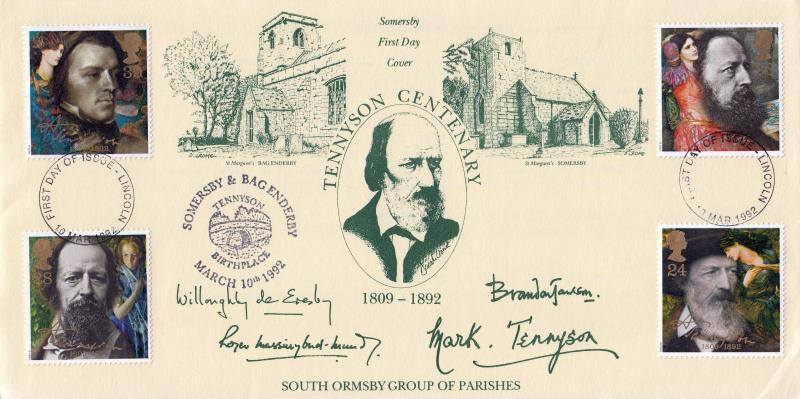 Somersby
First Day
Cover
TENNYSON CENTENARY
St Margaret's BAG ENDERBY
St Margaret's SOMERSBY
FIRST DAY OF ISSUE · LINCOLN
10 MAR 1992
FIRST DAY OF ISSUE · LINCOLN
10 MAR 1992
SOMERSBY & BAG ENDERBY
TENNYSON
BIRTHPLACE
MARCH 10th 1992
1809-1892
24
1809-1892
Willoughby de Eresby
Mark. Tennyson
SOUTH ORMSBY GROUP OF PARISHES